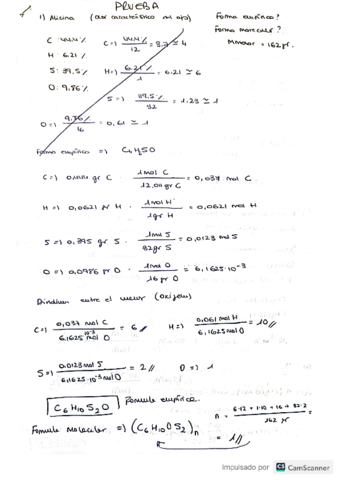 PRUEBA
1) Alicina (olor característico del ajo) Forma empírica?
Forma molecular?
Mmolar = 162 gr.
C: 44.4% C=) 44.4% / 12 = 3.7 ≃ 4
H: 6.21% H=) 6.21% / 1 = 6.21 ≃ 6
S: 39,5% S=) 39.5% / 32 = 1.23 ≃ 1
O: 9.86% O=) 9.86% / 16 = 0,61 ≃ 1
Forma empírica =)
C=) 0.444 gr C · 1 mol C / 12,00 gr C = 0,037 mol C
H=) 0,0621 gr H · 1 mol H / 1 gr H = 0,0621 mol H
S=) 0,395 gr S · 1 mol S / 32 gr S = 0,0123 mol S
O=) 0,0986 gr O · 1 mol O / 16 gr O = 6,1625·10⁻³
Dividimos entre el menor (oxígeno)
C=) 0,037 mol C / 6,1625·10⁻³ mol O = 6 H=) 0,061 mol H / 6,1625 mol O = 10
S=) 0,0123 mol S / 6,1625·10⁻³ mol O = 2 O=) 1
C₆H₁₀S₂O Formula empírica.
Formula Molecular =) (C₆H₁₀OS₂)n
n = 6·12 + 1·10 + 16 + 32·2 / 162 gr =
= 1
Impulsado por CS CamScanner